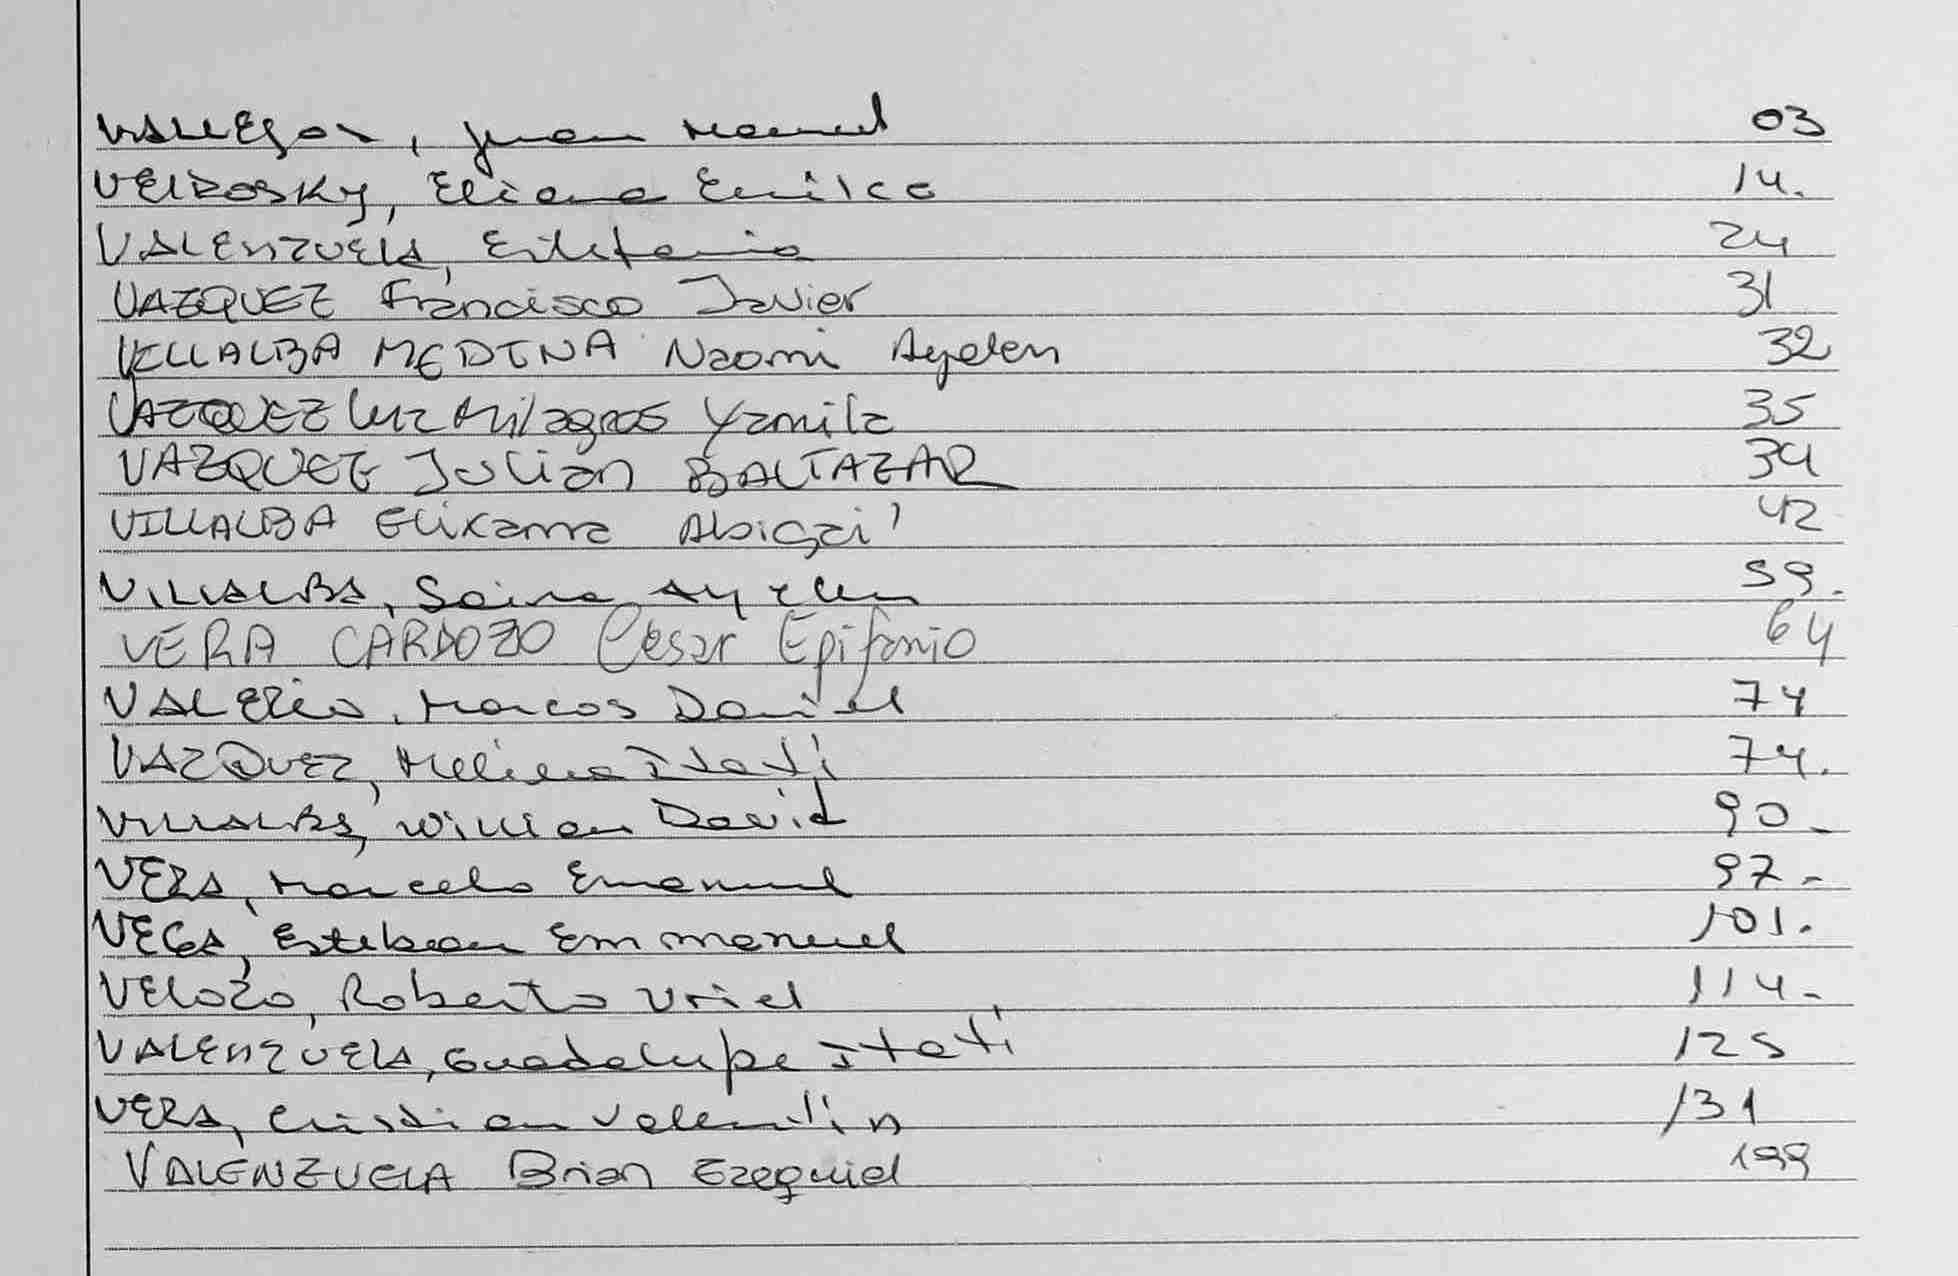 VALLEJOS, Juan Manuel 03
VEIROSKY, Eliana Emilce 14.
VALENZUELA, Estefania 24
VAZQUEZ Francisco Javier 31
VILLALBA MEDINA Naomi Ayelen 32
VAZQUEZ Luz Milagros Yamila 35
VAZQUEZ Julian BALTAZAR 34
VILLALBA Abigai' 42
VILLALBA, Ayelen 59.
VERA CARDOZO Cesar Epifanio 64
VALERIO, Marcos Daniel 74
VAZQUEZ, Melina Itati 74.
VILLALBA, Willian David 90-
VERA, Marcelo Emanuel 97-
VEGA, Esteban Emmanuel 101.
VELOZO, Roberto Uriel 114-
VALENZUELA, Guadalupe Itati 125
VERA, Cristian Valentín 131
VALENZUELA Brian Ezequiel 199